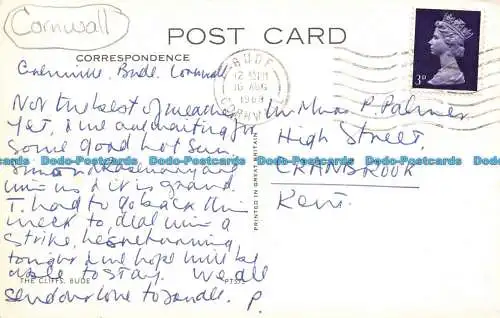 Cornwall
POST CARD
CORRESPONDENCE
BUDE
12 15PM
16 AUG
1969
CORNWALL
3D
Bude, Cornwall
Not the best of weather
yet, & we are waiting for
some good hot sun
Simon & Rosemary are
with us & it is grand.
T. had to go back this
week to deal with a
strike, he is returning
tonight & we hope will be
able to stay. We all
send our love to you all. P.
Mr & Mrs P. Palmer
High Street,
CRANBROOK
Kent.
PRINTED IN GREAT BRITAIN
THE CLIFFS, BUDE
Dodo-Postcards Dodo-Postcards Dodo-Postcards Dodo-Postcards Dodo-Postcards